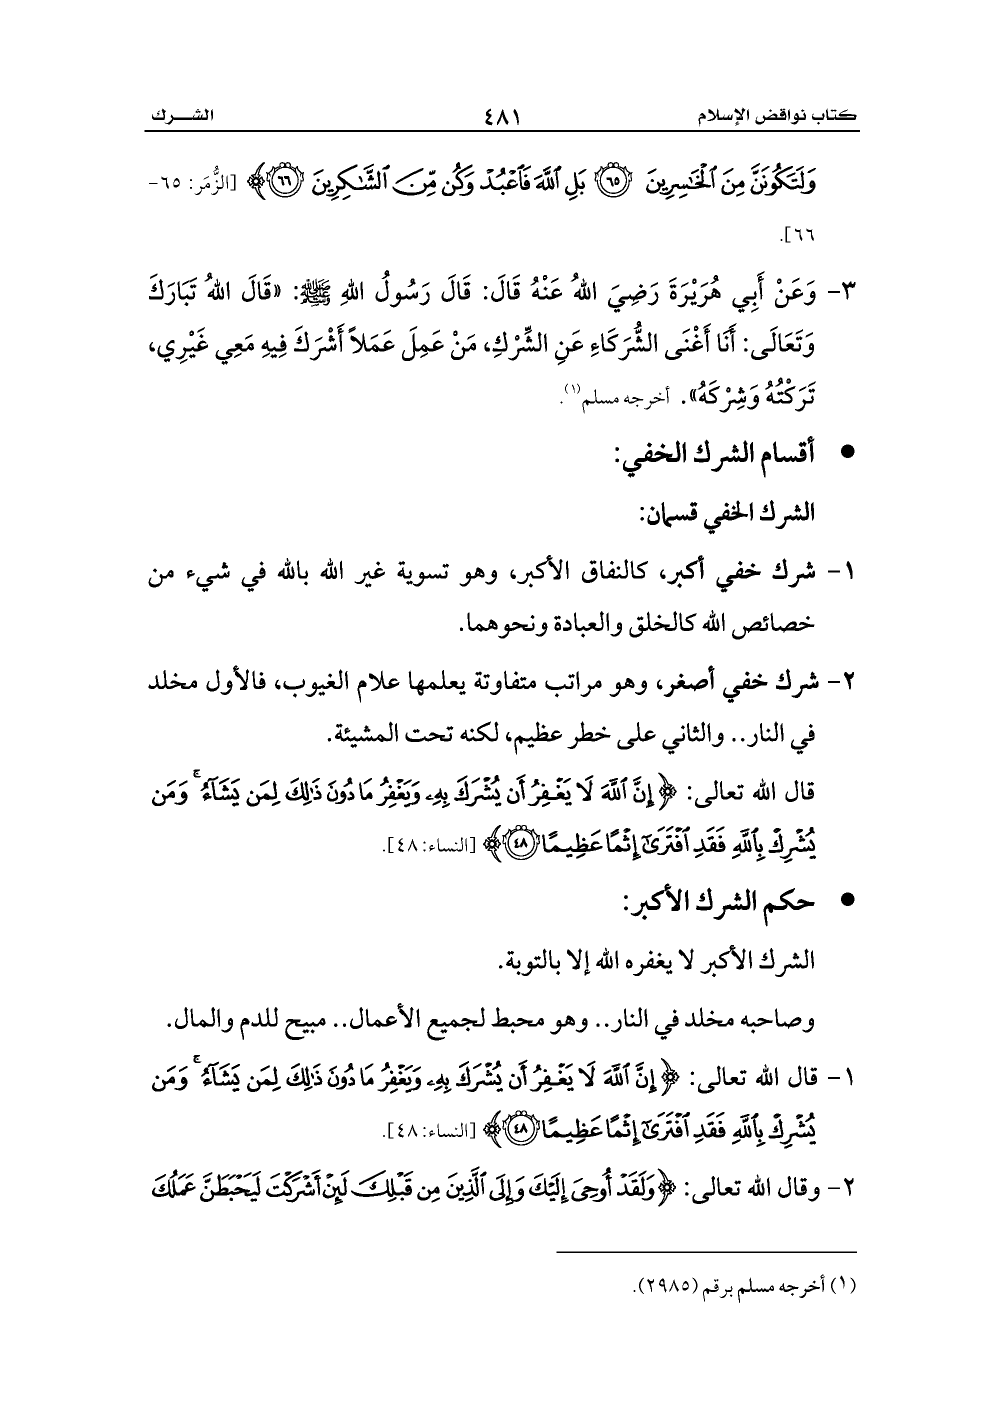 كتاب نواقض الإسلام ٤٨١ الشـــرك
وَلَتَكُونَنَّ مِنَ ٱلْخَٰسِرِينَ ٦٥ بَلِ ٱللَّهَ فَٱعْبُدْ وَكُن مِّنَ ٱلشَّٰكِرِينَ ٦٦﴾ [الزُّمَر: ٦٥-
٦٦].
٣- وَعَنْ أَبِي هُرَيْرَةَ رَضِيَ اللهُ عَنْهُ قَالَ: قَالَ رَسُولُ اللهِ ﷺ: «قَالَ اللهُ تَبَارَكَ
وَتَعَالَى: أَنَا أَغْنَى الشُّرَكَاءِ عَنِ الشِّرْكِ، مَنْ عَمِلَ عَمَلاً أَشْرَكَ فِيهِ مَعِي غَيْرِي،
تَرَكْتُهُ وَشِرْكَهُ». أخرجه مسلم(١).
● أقسام الشرك الخفي:
الشرك الخفي قسمان:
١- شرك خفي أكبر، كالنفاق الأكبر، وهو تسوية غير الله بالله في شيء من
خصائص الله كالخلق والعبادة ونحوهما.
٢- شرك خفي أصغر، وهو مراتب متفاوتة يعلمها علام الغيوب، فالأول مخلد
في النار.. والثاني على خطر عظيم، لكنه تحت المشيئة.
قال الله تعالى: ﴿إِنَّ ٱللَّهَ لَا يَغْفِرُ أَن يُشْرَكَ بِهِۦ وَيَغْفِرُ مَا دُونَ ذَٰلِكَ لِمَن يَشَآءُ ۚ وَمَن
يُشْرِكْ بِٱللَّهِ فَقَدِ ٱفْتَرَىٰٓ إِثْمًا عَظِيمًا ٤٨﴾ [النساء: ٤٨].
● حكم الشرك الأكبر:
الشرك الأكبر لا يغفره الله إلا بالتوبة.
وصاحبه مخلد في النار.. وهو محبط لجميع الأعمال.. مبيح للدم والمال.
١- قال الله تعالى: ﴿إِنَّ ٱللَّهَ لَا يَغْفِرُ أَن يُشْرَكَ بِهِۦ وَيَغْفِرُ مَا دُونَ ذَٰلِكَ لِمَن يَشَآءُ ۚ وَمَن
يُشْرِكْ بِٱللَّهِ فَقَدِ ٱفْتَرَىٰٓ إِثْمًا عَظِيمًا ٤٨﴾ [النساء: ٤٨].
٢- وقال الله تعالى: ﴿وَلَقَدْ أُوحِىَ إِلَيْكَ وَإِلَى ٱلَّذِينَ مِن قَبْلِكَ لَئِنْ أَشْرَكْتَ لَيَحْبَطَنَّ عَمَلُكَ
(١) أخرجه مسلم برقم (٢٩٨٥).